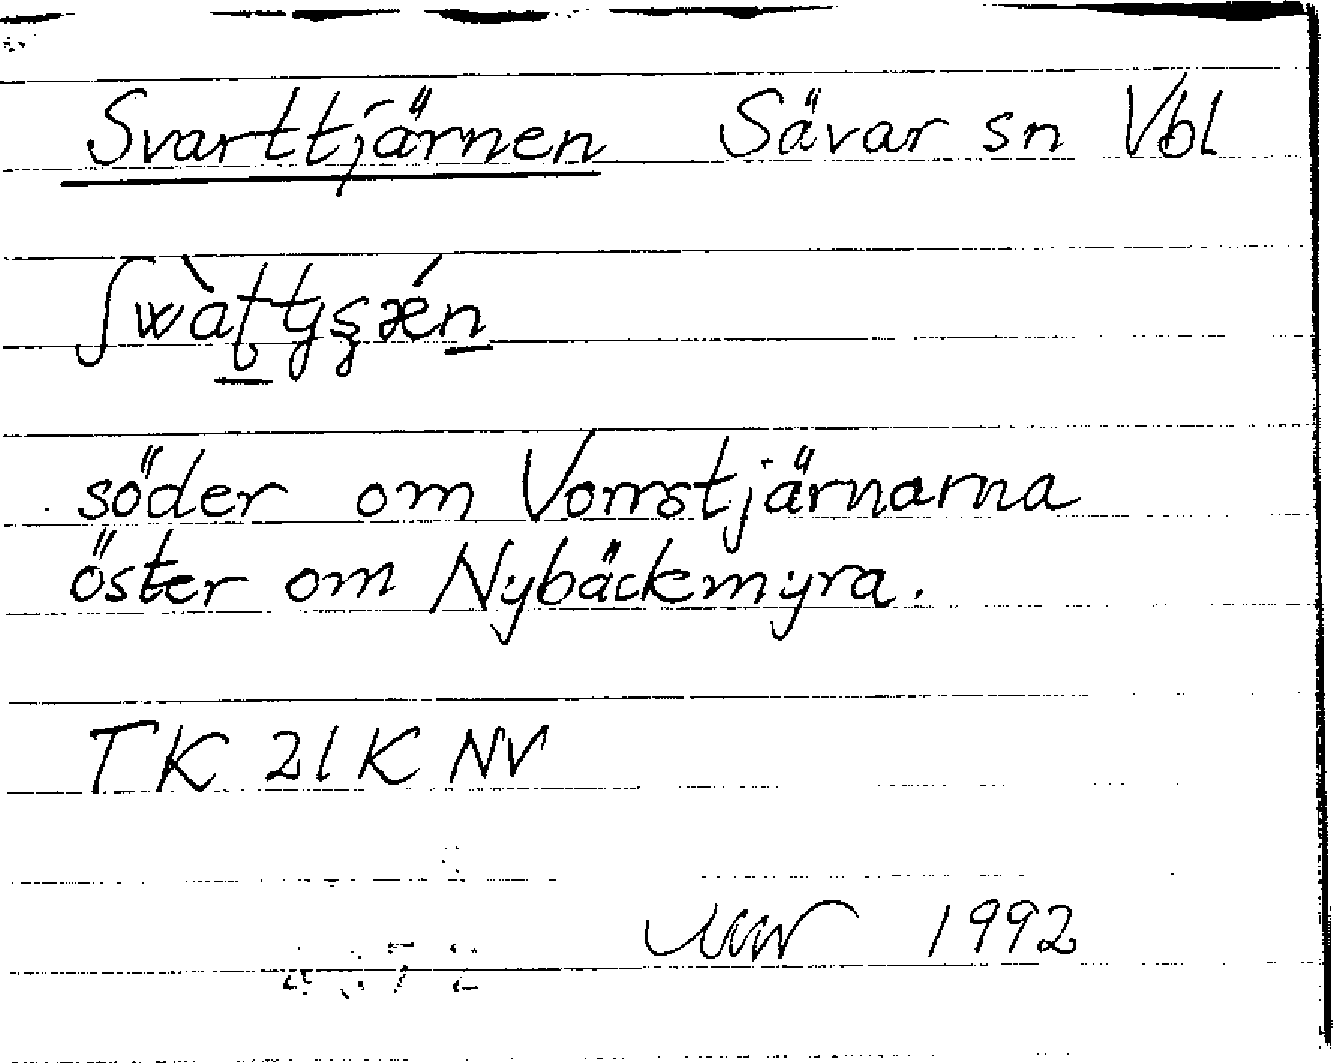 Svarttjärnen Sävar sn Vbl
söder om Vorrstjärnarna
öster om Nybäckmyra.
TK 21K NV
1992